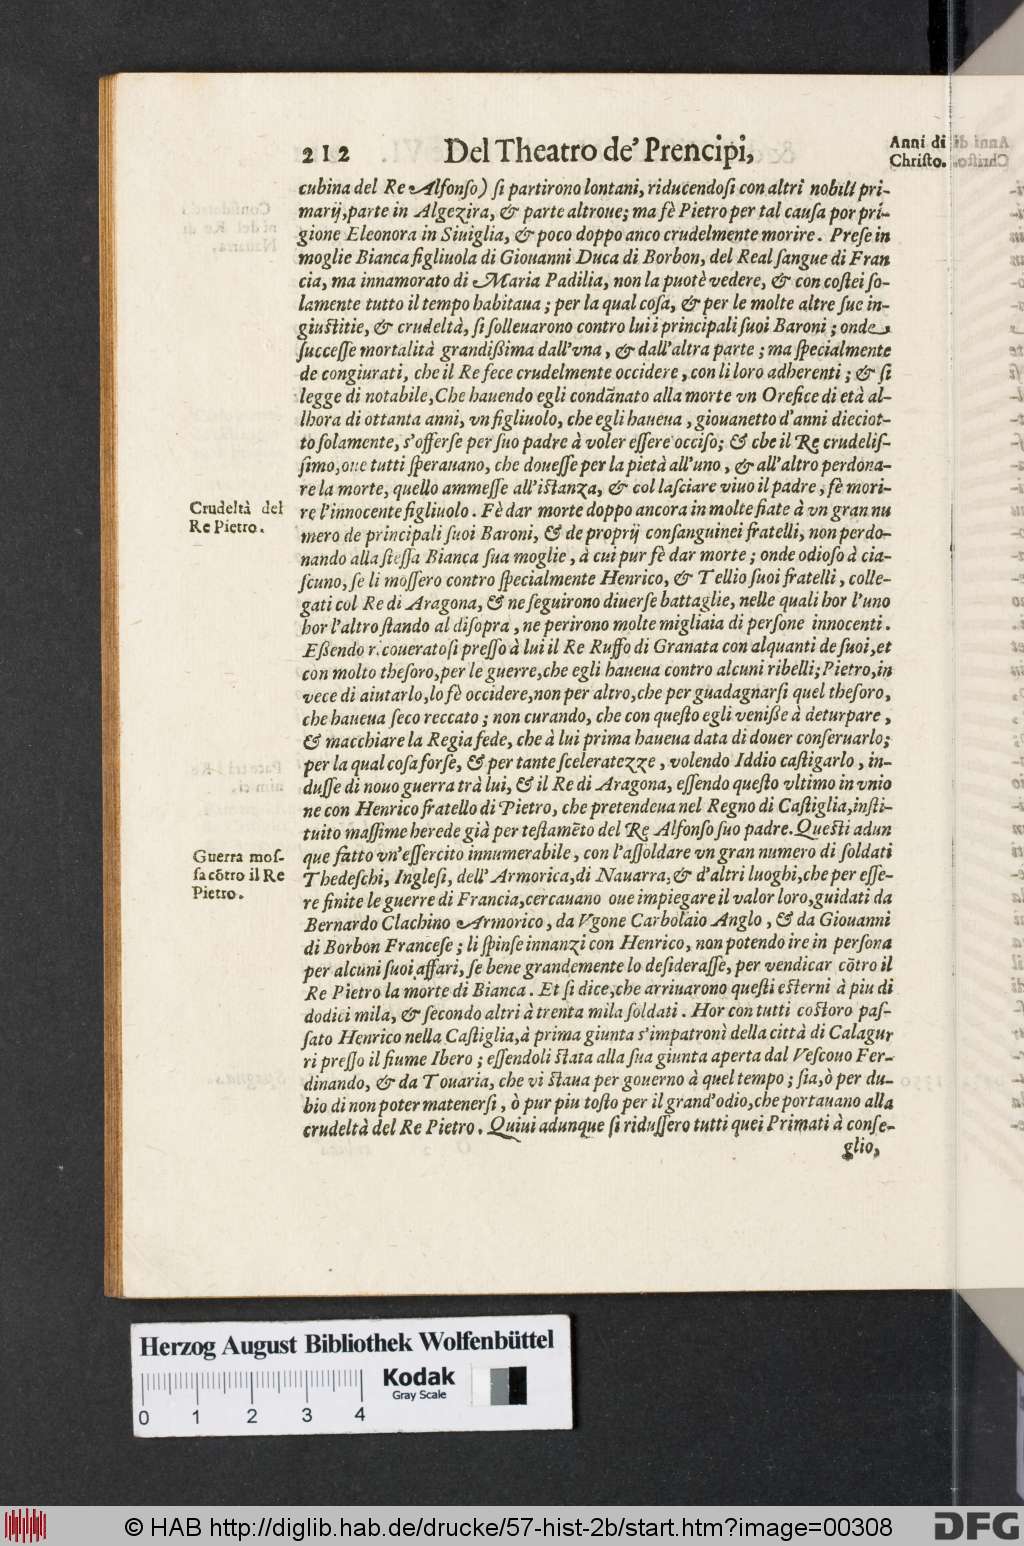 212 Del Theatro de' Prencipi, Anni di
Christo.
cubina del Re Alfonso) ſi partirono lontani, riducendoſi con altri nobili pri-
marij, parte in Algezira, & parte altroue; ma fè Pietro per tal cauſa por pri-
gione Eleonora in Siuiglia, & poco doppo anco crudelmente morire. Preſe in
moglie Bianca figliuola di Giouanni Duca di Borbon, del Real ſangue di Fran
cia, ma innamorato di Maria Padilia, non la puotè vedere, & con coſtei ſo-
lamente tutto il tempo habitaua; per la qual coſa, & per le molte altre ſue in-
giuſtitie, & crudeltà, ſi ſolleuarono contro lui i principali ſuoi Baroni; onde
ſucceſſe mortalità grandißima dall'vna, & dall'altra parte; ma ſpecialmente
de congiurati, che il Re fece crudelmente occidere, con li loro adherenti; & ſi
legge di notabile, Che hauendo egli condãnato alla morte vn Orefice di età al-
lhora di ottanta anni, vn figliuolo, che egli haueua, giouanetto d'anni dieciot-
to ſolamente, s'offerſe per ſuo padre à voler eſſere occiſo; & che il Re crudeliſ-
ſimo, oue tutti ſperauano, che doueſſe per la pietà all'uno, & all'altro perdona-
re la morte, quello ammeſſe all'iſtanza, & col laſciare viuo il padre, fè mori-
Crudeltà del
Re Pietro.
re l'innocente figliuolo. Fè dar morte doppo ancora in molte fiate à vn gran nu
mero de principali ſuoi Baroni, & de proprij conſanguinei fratelli, non perdo-
nando alla ſteſſa Bianca ſua moglie, à cui pur fè dar morte; onde odioſo à cia-
ſcuno, ſe li moſſero contro ſpecialmente Henrico, & Tellio ſuoi fratelli, colle-
gati col Re di Aragona, & ne ſeguirono diuerſe battaglie, nelle quali hor l'uno
hor l'altro ſtando al diſopra, ne perirono molte migliaia di perſone innocenti.
Eßendo ricoueratoſi preſſo à lui il Re Ruffo di Granata con alquanti de ſuoi, et
con molto theſoro, per le guerre, che egli haueua contro alcuni ribelli; Pietro, in
vece di aiutarlo, lo fè occidere, non per altro, che per guadagnarſi quel theſoro,
che haueua ſeco reccato; non curando, che con queſto egli veniße à deturpare,
& macchiare la Regia fede, che à lui prima haueua data di douer conſeruarlo;
per la qual coſa forſe, & per tante ſceleratezze, volendo Iddio caſtigarlo, in-
duſſe di nouo guerra trà lui, & il Re di Aragona, eſſendo queſto vltimo in vnio
ne con Henrico fratello di Pietro, che pretendeua nel Regno di Caſtiglia, inſti-
tuito maſſime herede già per teſtamẽto del Re Alfonſo ſuo padre. Queſti adun
Guerra moſ-
ſa cõtro il Re
Pietro.
que fatto vn'eſſercito innumerabile, con l'aſſoldare vn gran numero di ſoldati
Thedeſchi, Ingleſi, dell'Armorica, di Nauarra, & d'altri luoghi, che per eſſe-
re finite le guerre di Francia, cercauano oue impiegare il valor loro, guidati da
Bernardo Clachino Armorico, da Vgone Carbolaio Anglo, & da Giouanni
di Borbon Franceſe; li ſpinſe innanzi con Henrico, non potendo ire in perſona
per alcuni ſuoi affari, ſe bene grandemente lo deſideraſſe, per vendicar cõtro il
Re Pietro la morte di Bianca. Et ſi dice, che arriuarono queſti eſterni à piu di
dodici mila, & ſecondo altri à trenta mila ſoldati. Hor con tutti coſtoro paſ-
ſato Henrico nella Caſtiglia, à prima giunta s'impatronì della città di Calagur
ri preſſo il fiume Ibero; eſſendoli ſtata alla ſua giunta aperta dal Veſcouo Fer-
dinando, & da Touaria, che vi ſtaua per gouerno à quel tempo; ſia, ò per du-
bio di non poter matenerſi, ò pur piu toſto per il grand'odio, che portauano alla
crudeltà del Re Pietro. Quiui adunque ſi riduſſero tutti quei Primati à conſe-
glio,
Herzog August Bibliothek Wolfenbüttel
Kodak
Gray Scale
0 1 2 3 4
© HAB http://diglib.hab.de/drucke/57-hist-2b/start.htm?image=00308
DFG